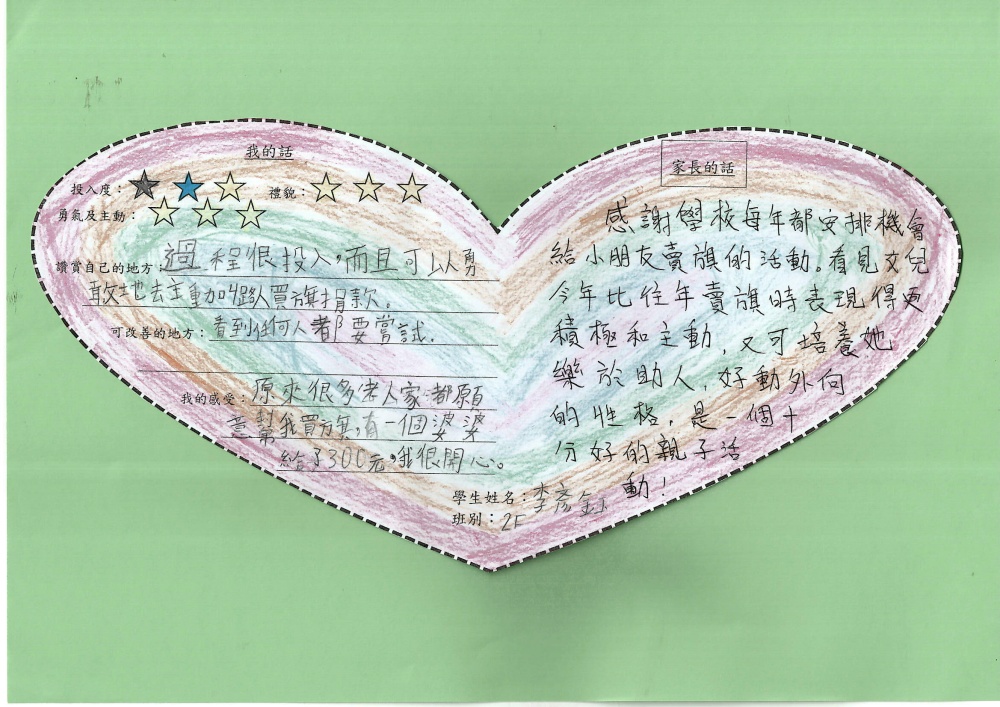 我的話
投入度：
禮貌：
勇氣及主動：
讚賞自己的地方：過程很投入,而且可以勇
敢地去主動叫路人買旗捐款。
可改善的地方：看到任何人都要嘗試.
我的感受：原來很多老人家都願
意幫我買旗,有一個婆婆
給了300元,我很開心。
家長的話
感謝學校每年都安排機會
給小朋友賣旗的活動。看見女兒
今年比往年賣旗時表現得更
積極和主動,又可培養她
樂於助人,好動外向
的性格,是一個十
分好的親子活
動!
學生姓名：李彥
班別：2F